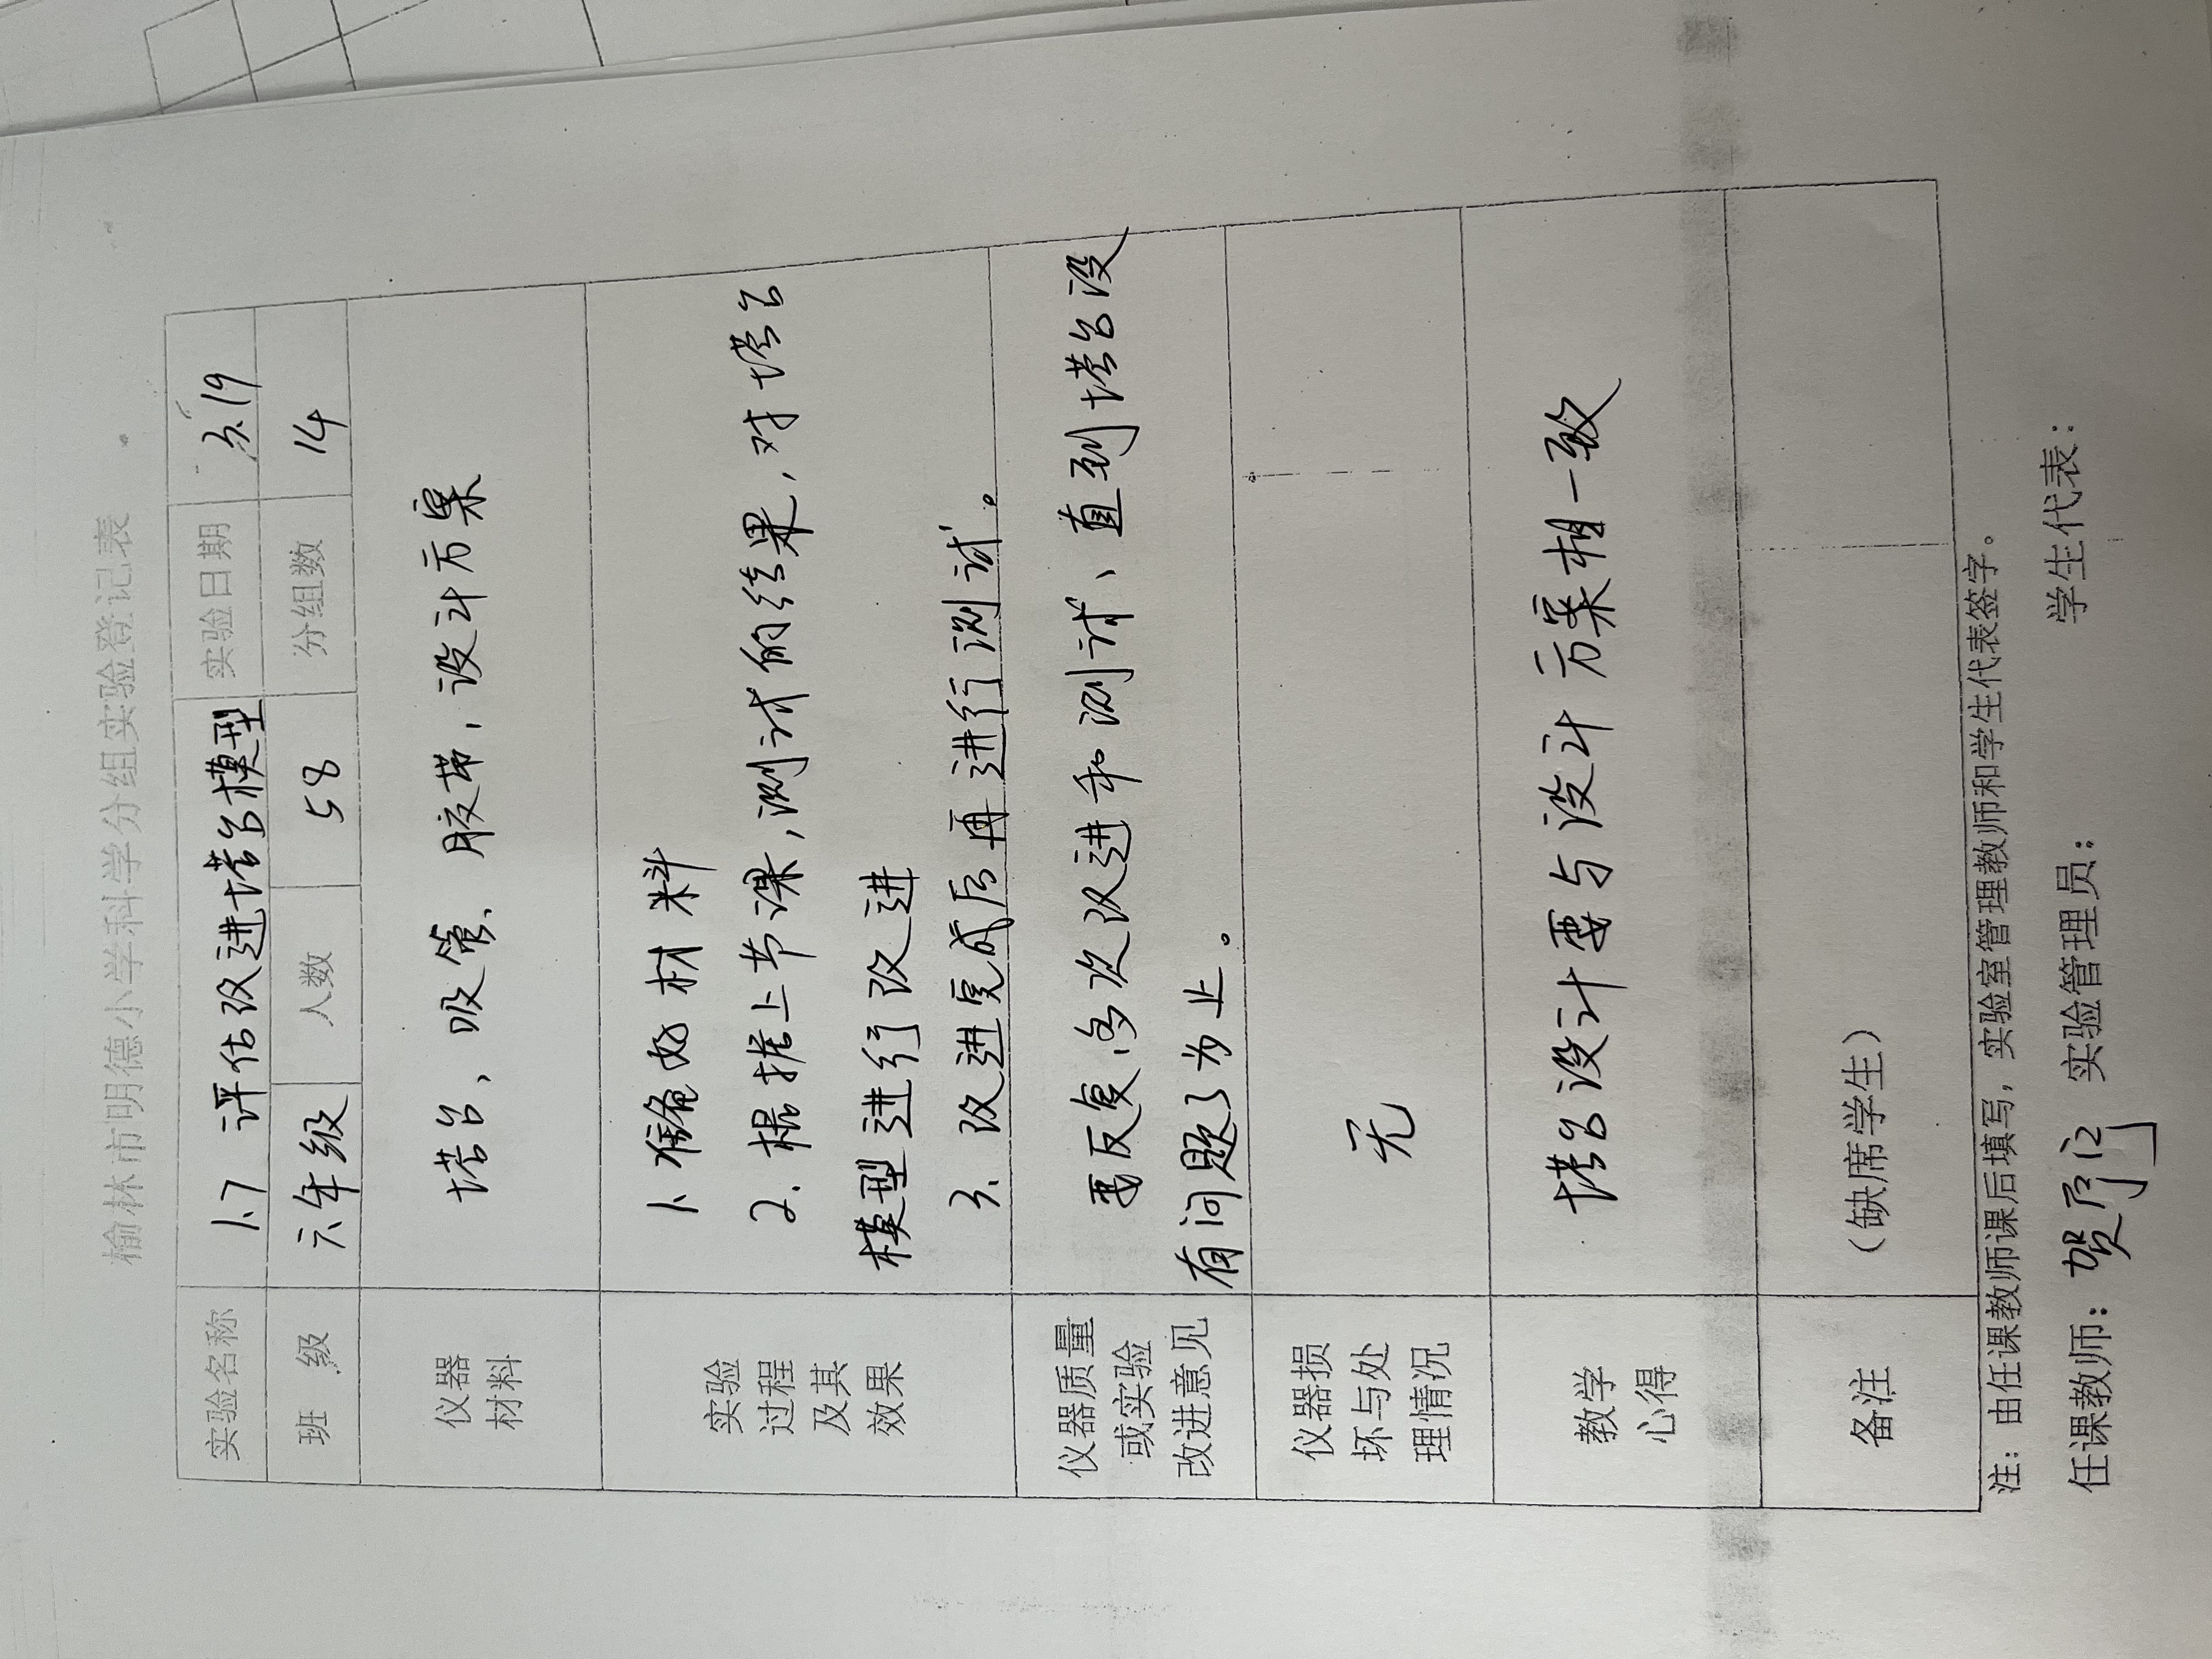 榆林市明德小学科学分组实验登记表
实验名称 1.7 评估改进塔台模型 实验日期 3.19
班 级 六年级 人数 58 分组数 14
仪器
材料
塔台、吸管、胶带，设计方案
实验
过程
及其
效果
1、准备好材料
2. 根据上节课，测试的结果，对塔台
模型进行改进
3、改进完成后再进行测试。
仪器质量
或实验
改进意见
要反复多次改进和测试、直到塔台没
有问题了为止。
仪器损
坏与处
理情况
无
教学
心得
塔台设计要与设计方案相一致
备注
（缺席学生）
注：由任课教师课后填写，实验室管理教师和学生代表签字。
任课教师：贺 实验管理员： 学生代表：